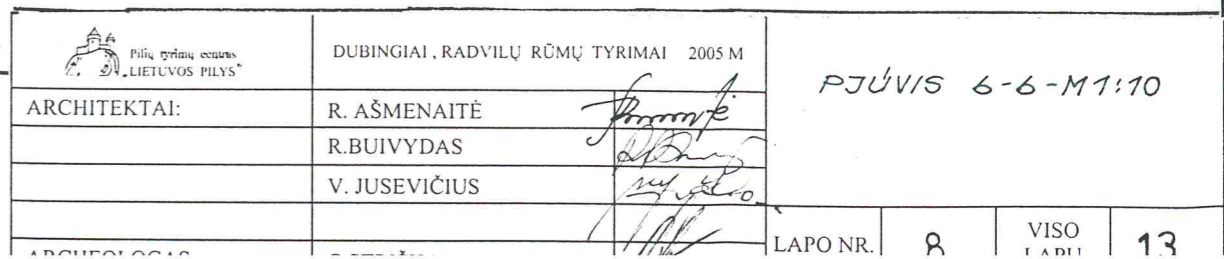 Pilių tyrimų centras
„LIETUVOS PILYS“
DUBINGIAI, RADVILŲ RŪMŲ TYRIMAI 2005 M
PJŪVIS 6-6-M1:10
ARCHITEKTAI: R. AŠMENAITĖ
R.BUIVYDAS
V. JUSEVIČIUS
LAPO NR. 8 VISO LAPŲ 13
ARCHEOLOGAS